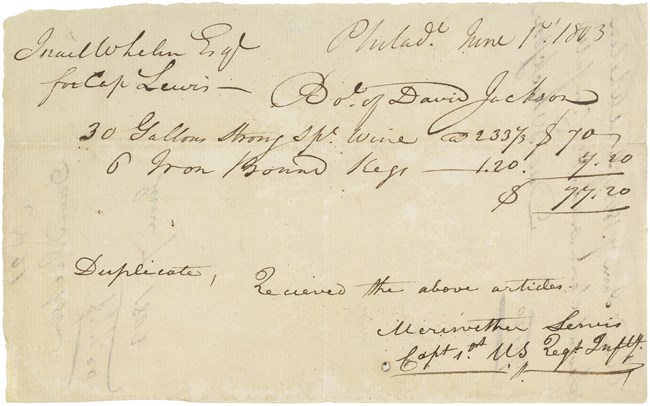 Israel Whelen Esqr
for Capt Lewis —
Philada. June 1st 1803
Bot. of David Jackson
30 Gallons Strong Spt. Wine @ 233⅓ $ 70 "
6 Iron Bound Kegs — 1.20. 7.20
$ 77.20
Duplicate, Recieved the above articles
Meriwether Lewis
Capt. 1st U.S. Regt. Infty.